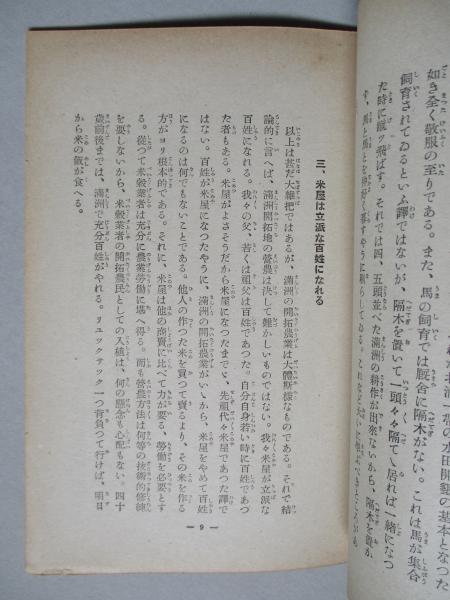 如き全く敬服の至りである。また、馬の飼育では厩舎に隔木がない。これは馬が集合
飼育されてゐるといふ譯ではないが、隔木を置いて一頭々々隔てゝ居れば一緒になつ
た時に蹴ッ飛ばす。それでは四、五頭並べた滿洲の耕作が出來ないから、隔木を置か
三、米屋は立派な百姓になれる
以上は甚だ大雜把ではあるが、滿洲の開拓農業は大體斯樣なものである。それで結
論的に言へば、滿洲開拓地の營農は決して難かしいものではない。我々米屋が立派な
百姓になれる。我々の父、若くは祖父は百姓であつた。自分自身若い時に百姓であつ
た者もある。米屋がよささうだから米屋になつたまでで、先祖代々米屋であつた譯で
はない。百姓が米屋になつたやうに、滿洲の開拓農業がいゝから、米屋をやめて百姓
になるのは何でもないことである。他人の作つた米を買つて賣るより、その米を作る
方がヨリ根本的である。それに、米屋は他の商賣に比べて力が要る、勞働を必要とす
る。從つて米穀業者は充分に農業勞働に堪へ得る。而も營農方法は何等の技術的修練
を要しないから、米穀業者の開拓農民としての入植は、何の懸念も心配もない。四十
歲前後までは、滿洲で充分百姓がやれる。リュックサック一つ背負つて行けば、明日
から米の飯が食へる。
— 9 —